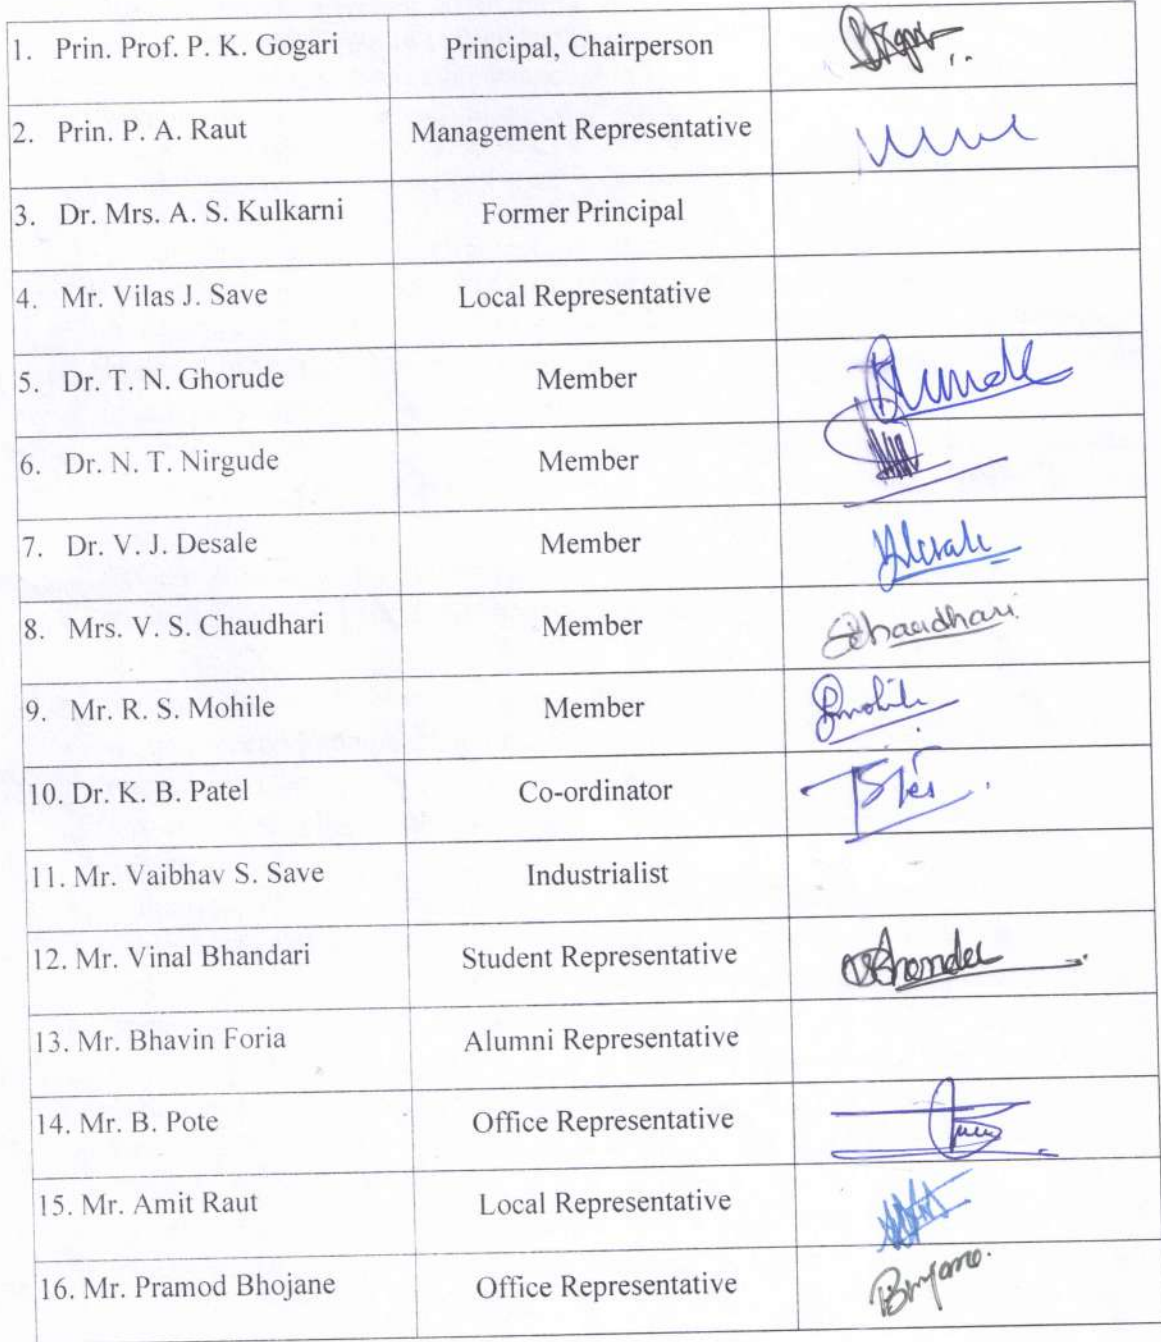 1. Prin. Prof. P. K. Gogari Principal, Chairperson
2. Prin. P. A. Raut Management Representative
3. Dr. Mrs. A. S. Kulkarni Former Principal
4. Mr. Vilas J. Save Local Representative
5. Dr. T. N. Ghorude Member
6. Dr. N. T. Nirgude Member
7. Dr. V. J. Desale Member
8. Mrs. V. S. Chaudhari Member Schaudhari
9. Mr. R. S. Mohile Member Rmohile
10. Dr. K. B. Patel Co-ordinator
11. Mr. Vaibhav S. Save Industrialist
12. Mr. Vinal Bhandari Student Representative
13. Mr. Bhavin Foria Alumni Representative
14. Mr. B. Pote Office Representative
15. Mr. Amit Raut Local Representative
16. Mr. Pramod Bhojane Office Representative